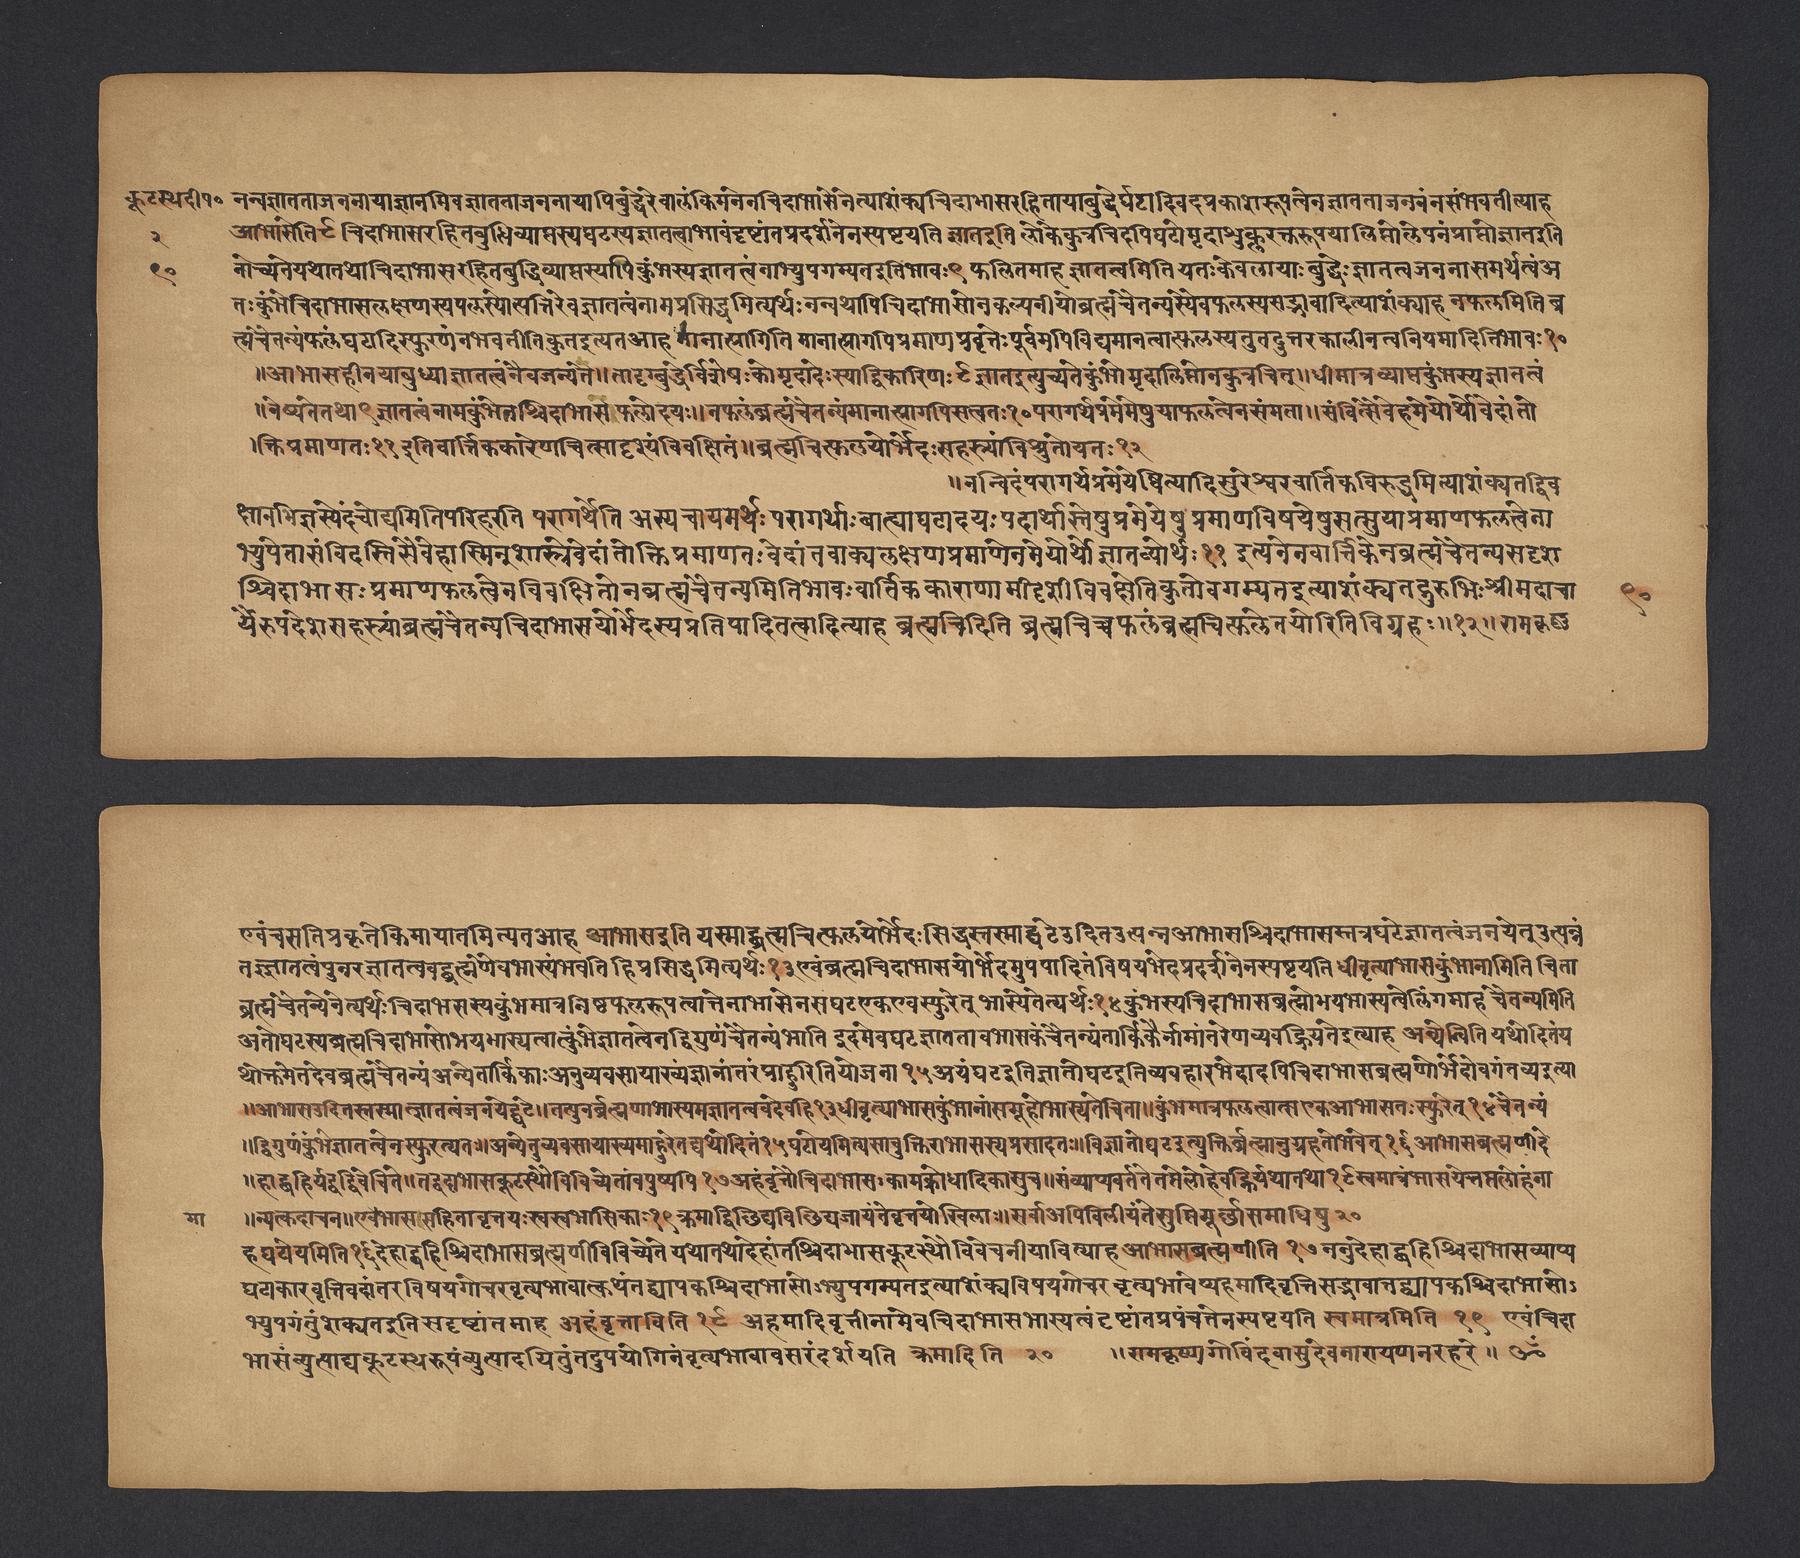 कूटस्थदी१० नन्वज्ञातताजननायाज्ञानमिवज्ञातताजननायापिबुद्धिरेवालंकिमनेनचिदाभासेनेत्याशंक्यचिदाभासरहितायाबुद्धेर्घटादिवदप्रकाशरूपत्वेनज्ञातताजननंनसंभवतीत्याह
२ आभासेति८ चिदाभासरहितबुधिव्याप्तस्यघटस्यज्ञातत्वाभावंदृष्टांतप्रदर्शनेनस्पष्टयति ज्ञातइति लोकेकुत्रचिदपिघटोमृदाशुक्लरक्तरूपयालिप्तोलेपनंप्राप्तोज्ञातइति
९० नोच्यतेयथातथाचिदाभासरहितबुद्धिव्याप्तस्यापिकुंभस्यज्ञातत्वंनाभ्युपगम्यतइतिभावः९ फलितमाह ज्ञातत्वमिति यतःकेवलायाःबुद्धेःज्ञातत्वजननासमर्थत्वंअ
तःकुंभेचिदाभासलक्षणस्यफलस्योत्पत्तिरेवज्ञातत्वंनामप्रसिद्धमित्यर्थःनन्वथापिचिदाभासोनकल्पनीयोब्रह्मचैतन्यस्यैवफलस्यसद्भावादित्याशंक्याह नफलमिति ब्र
ह्मचैतन्यंफलंघटादिस्फुरणंनभवतीतिकुतइत्यतआह मानात्प्रागिति मानात्प्रागपिप्रमाणप्रवृत्तेःपूर्वमपिविद्यमानत्वात्फलस्यतुतदुत्तरकालीनत्वनियमादितिभावः१०
॥आभासहीनयाबुध्याज्ञातत्वंनैवजन्यते॥तादृग्बुद्धेर्विशेषःकोमृदादेःस्याद्विकारिणः८ज्ञातइत्युच्यतेकुंभोमृदालिप्तोनकुत्रचित्॥धीमात्रव्याप्तकुंभस्यज्ञातत्वं
॥नेष्यतेतथा९ज्ञातत्वंनामकुंभेतश्चिदाभासफलोदयः॥नफलंब्रह्मचैतन्यंमानात्प्रागपिसत्वतः१०परागर्थप्रमेयेषुयाफलत्वेनसंमता॥संवित्सैवेहमेयोर्थोवेदांतो
।क्तिप्रमाणतः११इतिवार्त्तिककारेणचित्सादृश्यंविवक्षितं॥ब्रह्मचित्फलयोर्भेदःसहस्र्यांविश्रुतोयतः१२
॥नन्विदंपरागर्थप्रमेयेष्वित्यादिसुरेश्वरवार्तिकविरुद्धमित्याशंक्यतद्विव
क्षानभिज्ञस्येदंचोद्यमितिपरिहरति परागर्थेति अस्यचायमर्थःपरागर्थाःबाह्याघटादयःपदार्थास्तेषुप्रमेयेषुप्रमाणविषयेषुसत्सुयाप्रमाणफलत्वेना
भ्युपेतासंविदस्तिसैवेहास्मिन्शास्त्रेवेदांतोक्तिप्रमाणतःवेदांतवाक्यलक्षणप्रमाणेनमेयोर्थोज्ञातव्योर्थः११ इत्यनेनवार्त्तिकेनब्रह्मचैतन्यसदृश
श्चिदाभासःप्रमाणफलत्वेनविवक्षितोनब्रह्मचैतन्यमितिभावःवार्तिककाराणामीदृशीविवक्षेतिकुतोवगम्यतइत्याशंक्यतद्गुरुभिःश्रीमदाचा ९०
र्यैरुपदेशसहस्र्यांब्रह्मचैतन्यचिदाभासयोर्भेदस्यप्रतिपादितत्वादित्याह ब्रह्मचिदिति ब्रह्मचिच्चफलंब्रह्मचित्फलेतयोरितिविग्रहः॥१२॥रामकृष्ण
एवंचसतिप्रकृतेकिमायातमित्यतआह आभासइति यस्माद्ब्रह्मचित्फलयोर्भेदःसिद्धस्तस्माद्घटेउदितउत्पन्नआभासश्चिदाभासस्तत्रघटेज्ञातत्वंजनयेत्उत्पन्नं
तज्ज्ञातत्वंपुनरज्ञातत्ववद्ब्रह्मणैवभास्यंभवति हिप्रसिद्धमित्यर्थः१३एवंब्रह्मचिदाभासयोर्भेदमुपपादितंविषयभेदप्रदर्शनेनस्पष्टयति धीवृत्याभासकुंभानामिति चिता
ब्रह्मचैतन्येनेत्यर्थःचिदाभसस्यकुंभमात्रनिष्ठफलरूपत्वात्तेनाभासेनसघटएकएवस्फुरेत् भास्येतेत्यर्थः१४कुंभस्यचिदाभासब्रह्मोभयभास्यत्वेलिंगमाह चैतन्यमिति
अतोघटस्यब्रह्मचिदाभासोभयभास्यत्वात्कुंभेज्ञातत्वेनद्विगुणंचैतन्यंभाति इदमेवघटज्ञाततावभासकंचैतन्यंतार्किकैर्नामांतरेणव्यवह्रियतेइत्याह अन्येत्विति यथोदितंय
थोक्तमेतदेवब्रह्मचैतन्यंअन्येतार्किकाःअनुव्यवसायाख्यंज्ञानांतरंप्राहुरितियोजना१५अयंघटइतिज्ञातोघटइतिव्यवहारभेदादपिचिदाभासब्रह्मणोर्भेदोवगंतव्यइत्या
॥आभासउदितस्तस्मात्ज्ञातत्वंजनयेद्घटे॥तत्पुनर्ब्रह्मणाभास्यमज्ञातत्ववदेवहि१३धीवृत्याभासकुंभानांसमूहोभास्यतेचिता॥कुंभमात्रफलत्वात्सएकआभासतःस्फुरेत्१४चैतन्यं
॥द्विगुणंकुंभेज्ञातत्वेनस्फुरत्यतः॥अन्येनुव्यवसायाख्यमाहुरेतद्यथोदितं१५घटोयमित्यसावुक्तिराभासस्यप्रसादतः॥विज्ञातोघटइत्युक्तिर्ब्रह्मानुग्रहतोभवेत्१६आभासब्रह्मणीदे
॥हाद्बहिर्यद्वद्विवेचिते॥तद्वदाभासकूटस्थौविविच्येतांवपुष्यपि१७अहंवृत्तौचिदाभासःकामक्रोधादिकासुच॥संव्याप्यवर्ततेतप्तेलोहेवह्निर्यथातथा१८स्वमात्रंभासयेत्तप्तंलोहंना
मा ॥न्यत्कदाचन॥एवंभाससहितावृत्तयःस्वस्वभासिकाः१९क्रमाद्विछिद्यविछिद्यजायंतेवृत्तयोखिलाः॥सर्वाअपिविलीयंतेसुप्तिमूर्छासमाधिषु२०
हघटोयमिति१६देहाद्बहिश्चिदाभासब्रह्मणीविविच्येते यथातथादेहांतश्चिदाभासकूटस्थौविवेचनीयावित्याह आभासब्रह्मणीति १७ननुदेहाद्बहिश्चिदाभासव्याप्य
घटाकारवृत्तिवदांतरविषयगोचरवृत्यभावात्कथंतद्व्यापकश्चिदाभासोऽभ्युपगम्यतइत्याशंक्यविषयगोचरवृत्यभावेप्यहमादिवृत्तिसद्भावात्तद्व्यापकश्चिदाभासोऽ
भ्युपगंतुंशक्यतइतिसदृष्टांतमाह अहंवृत्ताविति १८ अहमादिवृत्तीनामेवचिदाभासभास्यत्वंदृष्टांतप्रपंचनेनस्पष्टयति स्वमात्रमिति १९ एवंचिदा
भासंव्युत्पाद्यकूटस्थरूपंव्युत्पादयितुंतदुपयोगिनंवृत्यभावावसरंदर्शयति क्रमादिति २० ॥रामकृष्णगोविंदवासुदेवनारायणनरहरे॥ ॐ